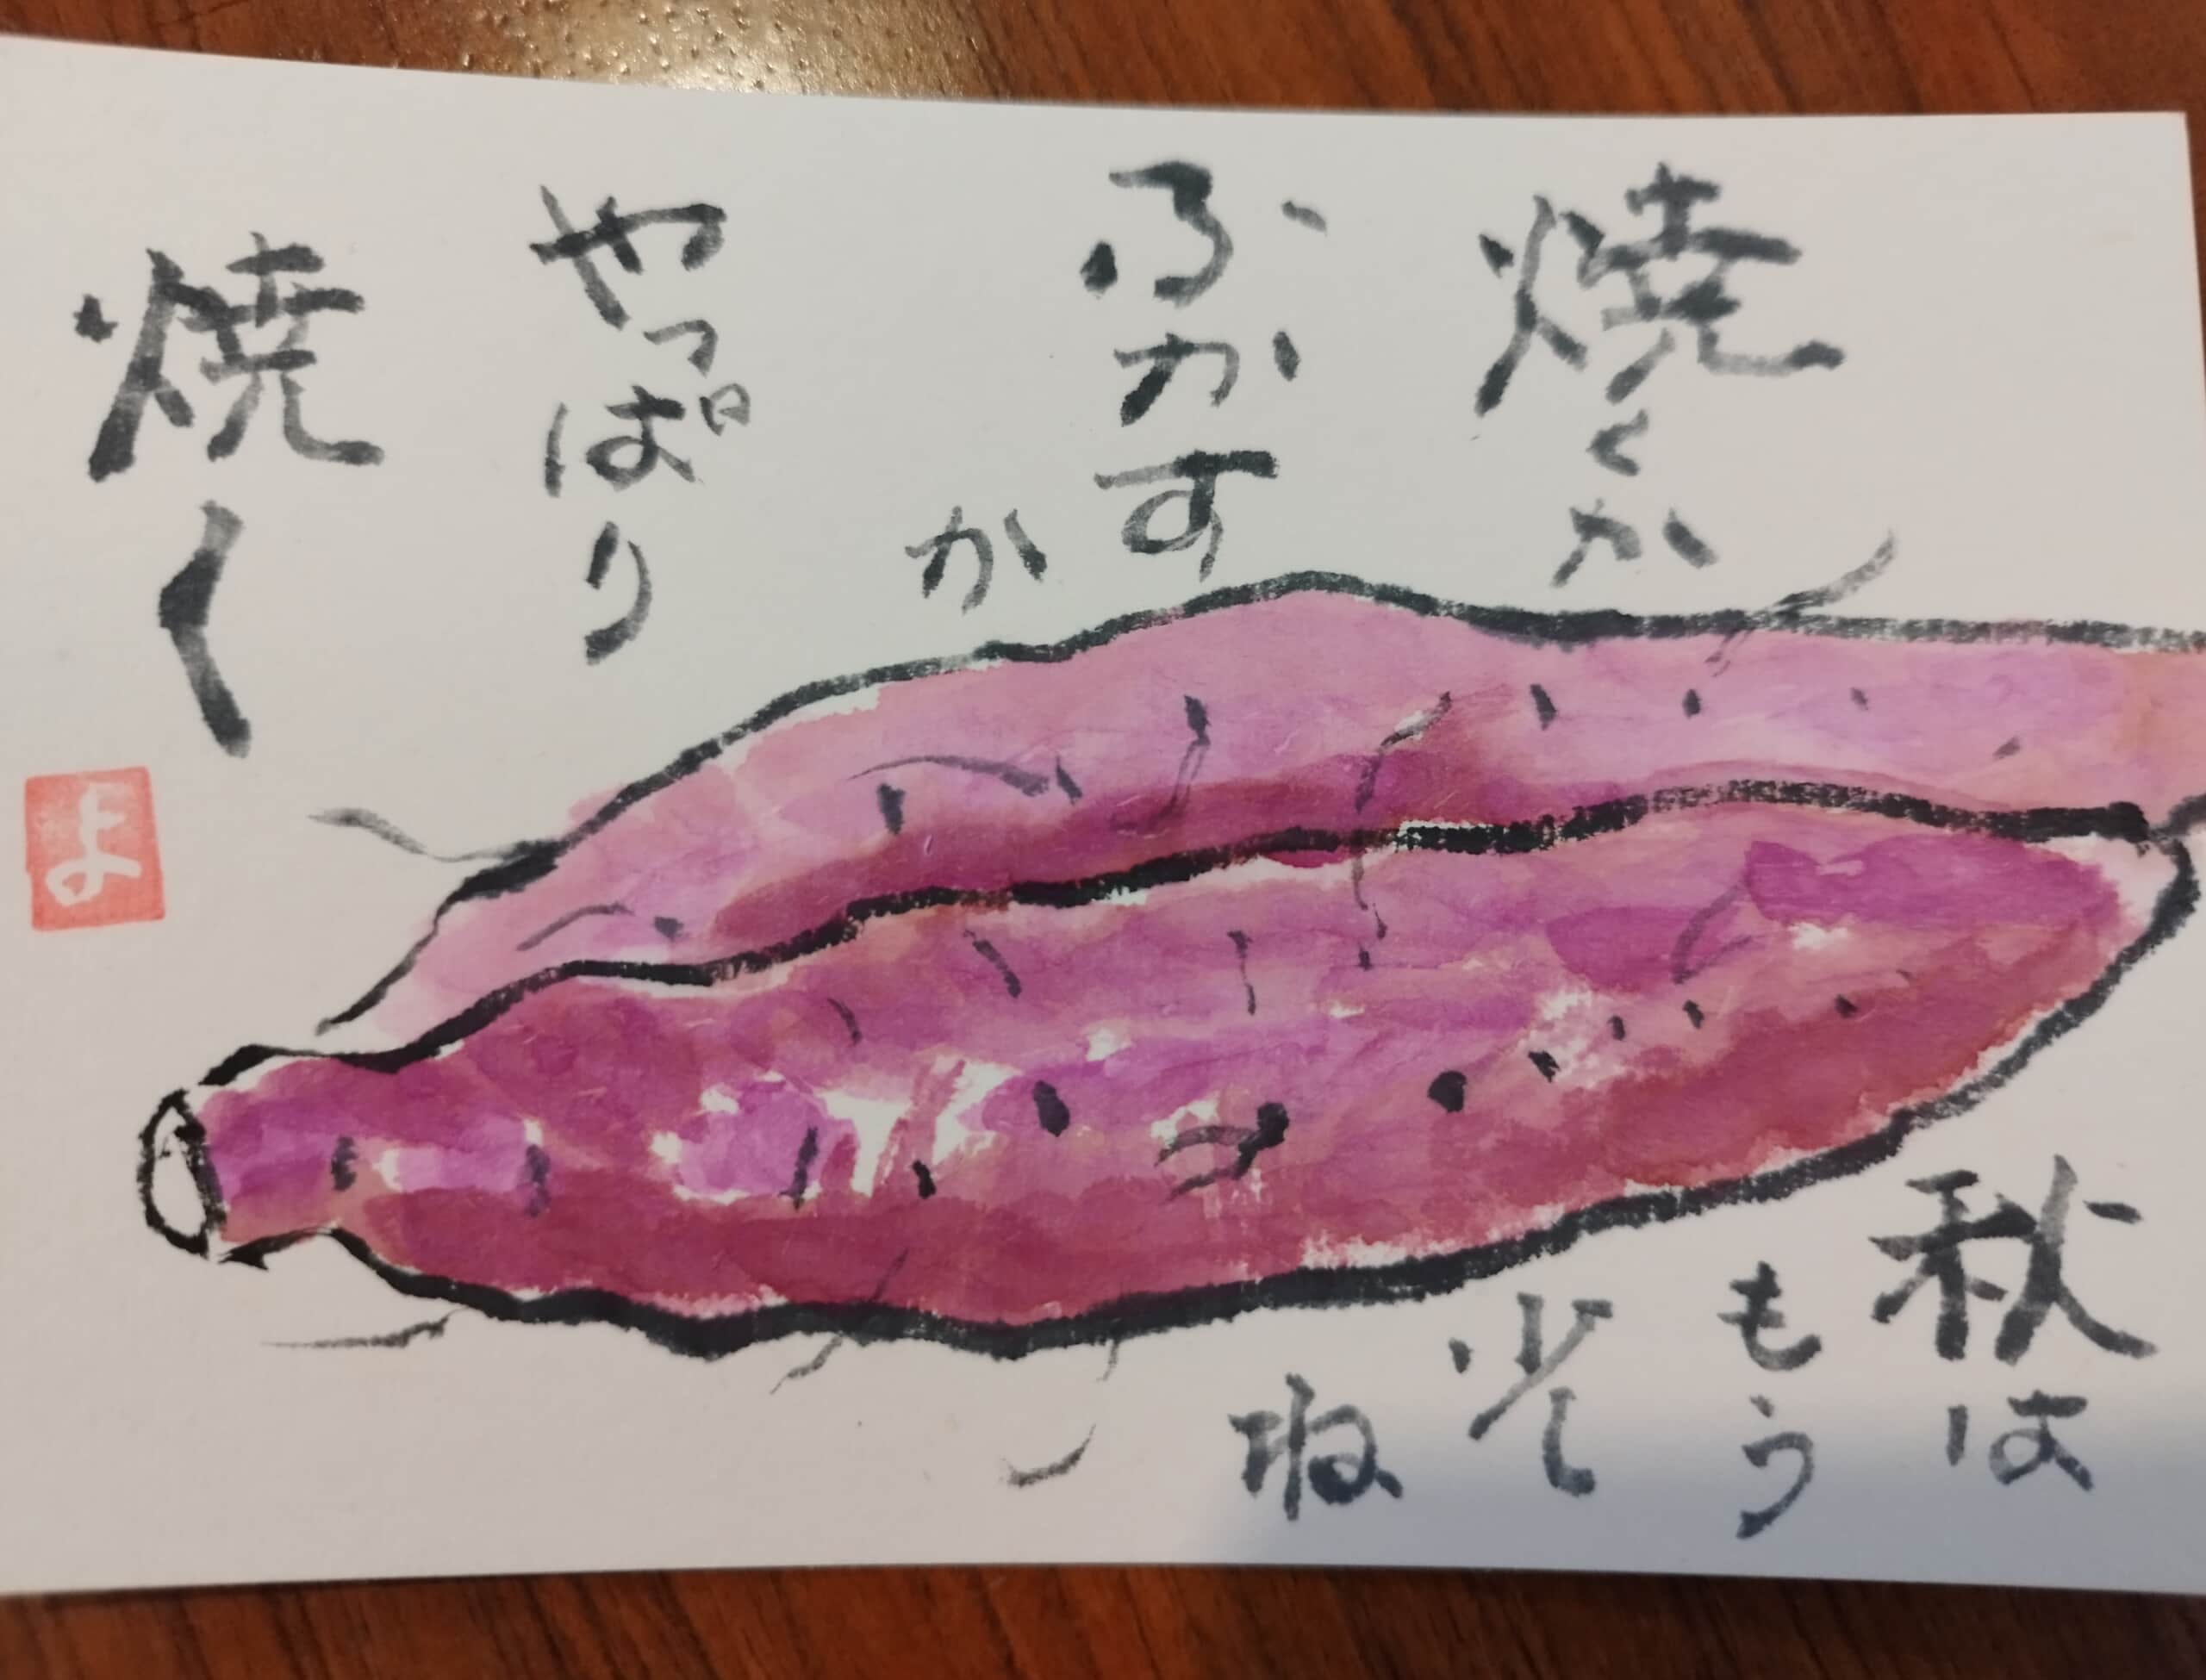 焼くか
ふかす
か
やっぱり
焼く
秋は
もう
少し
ね
よ